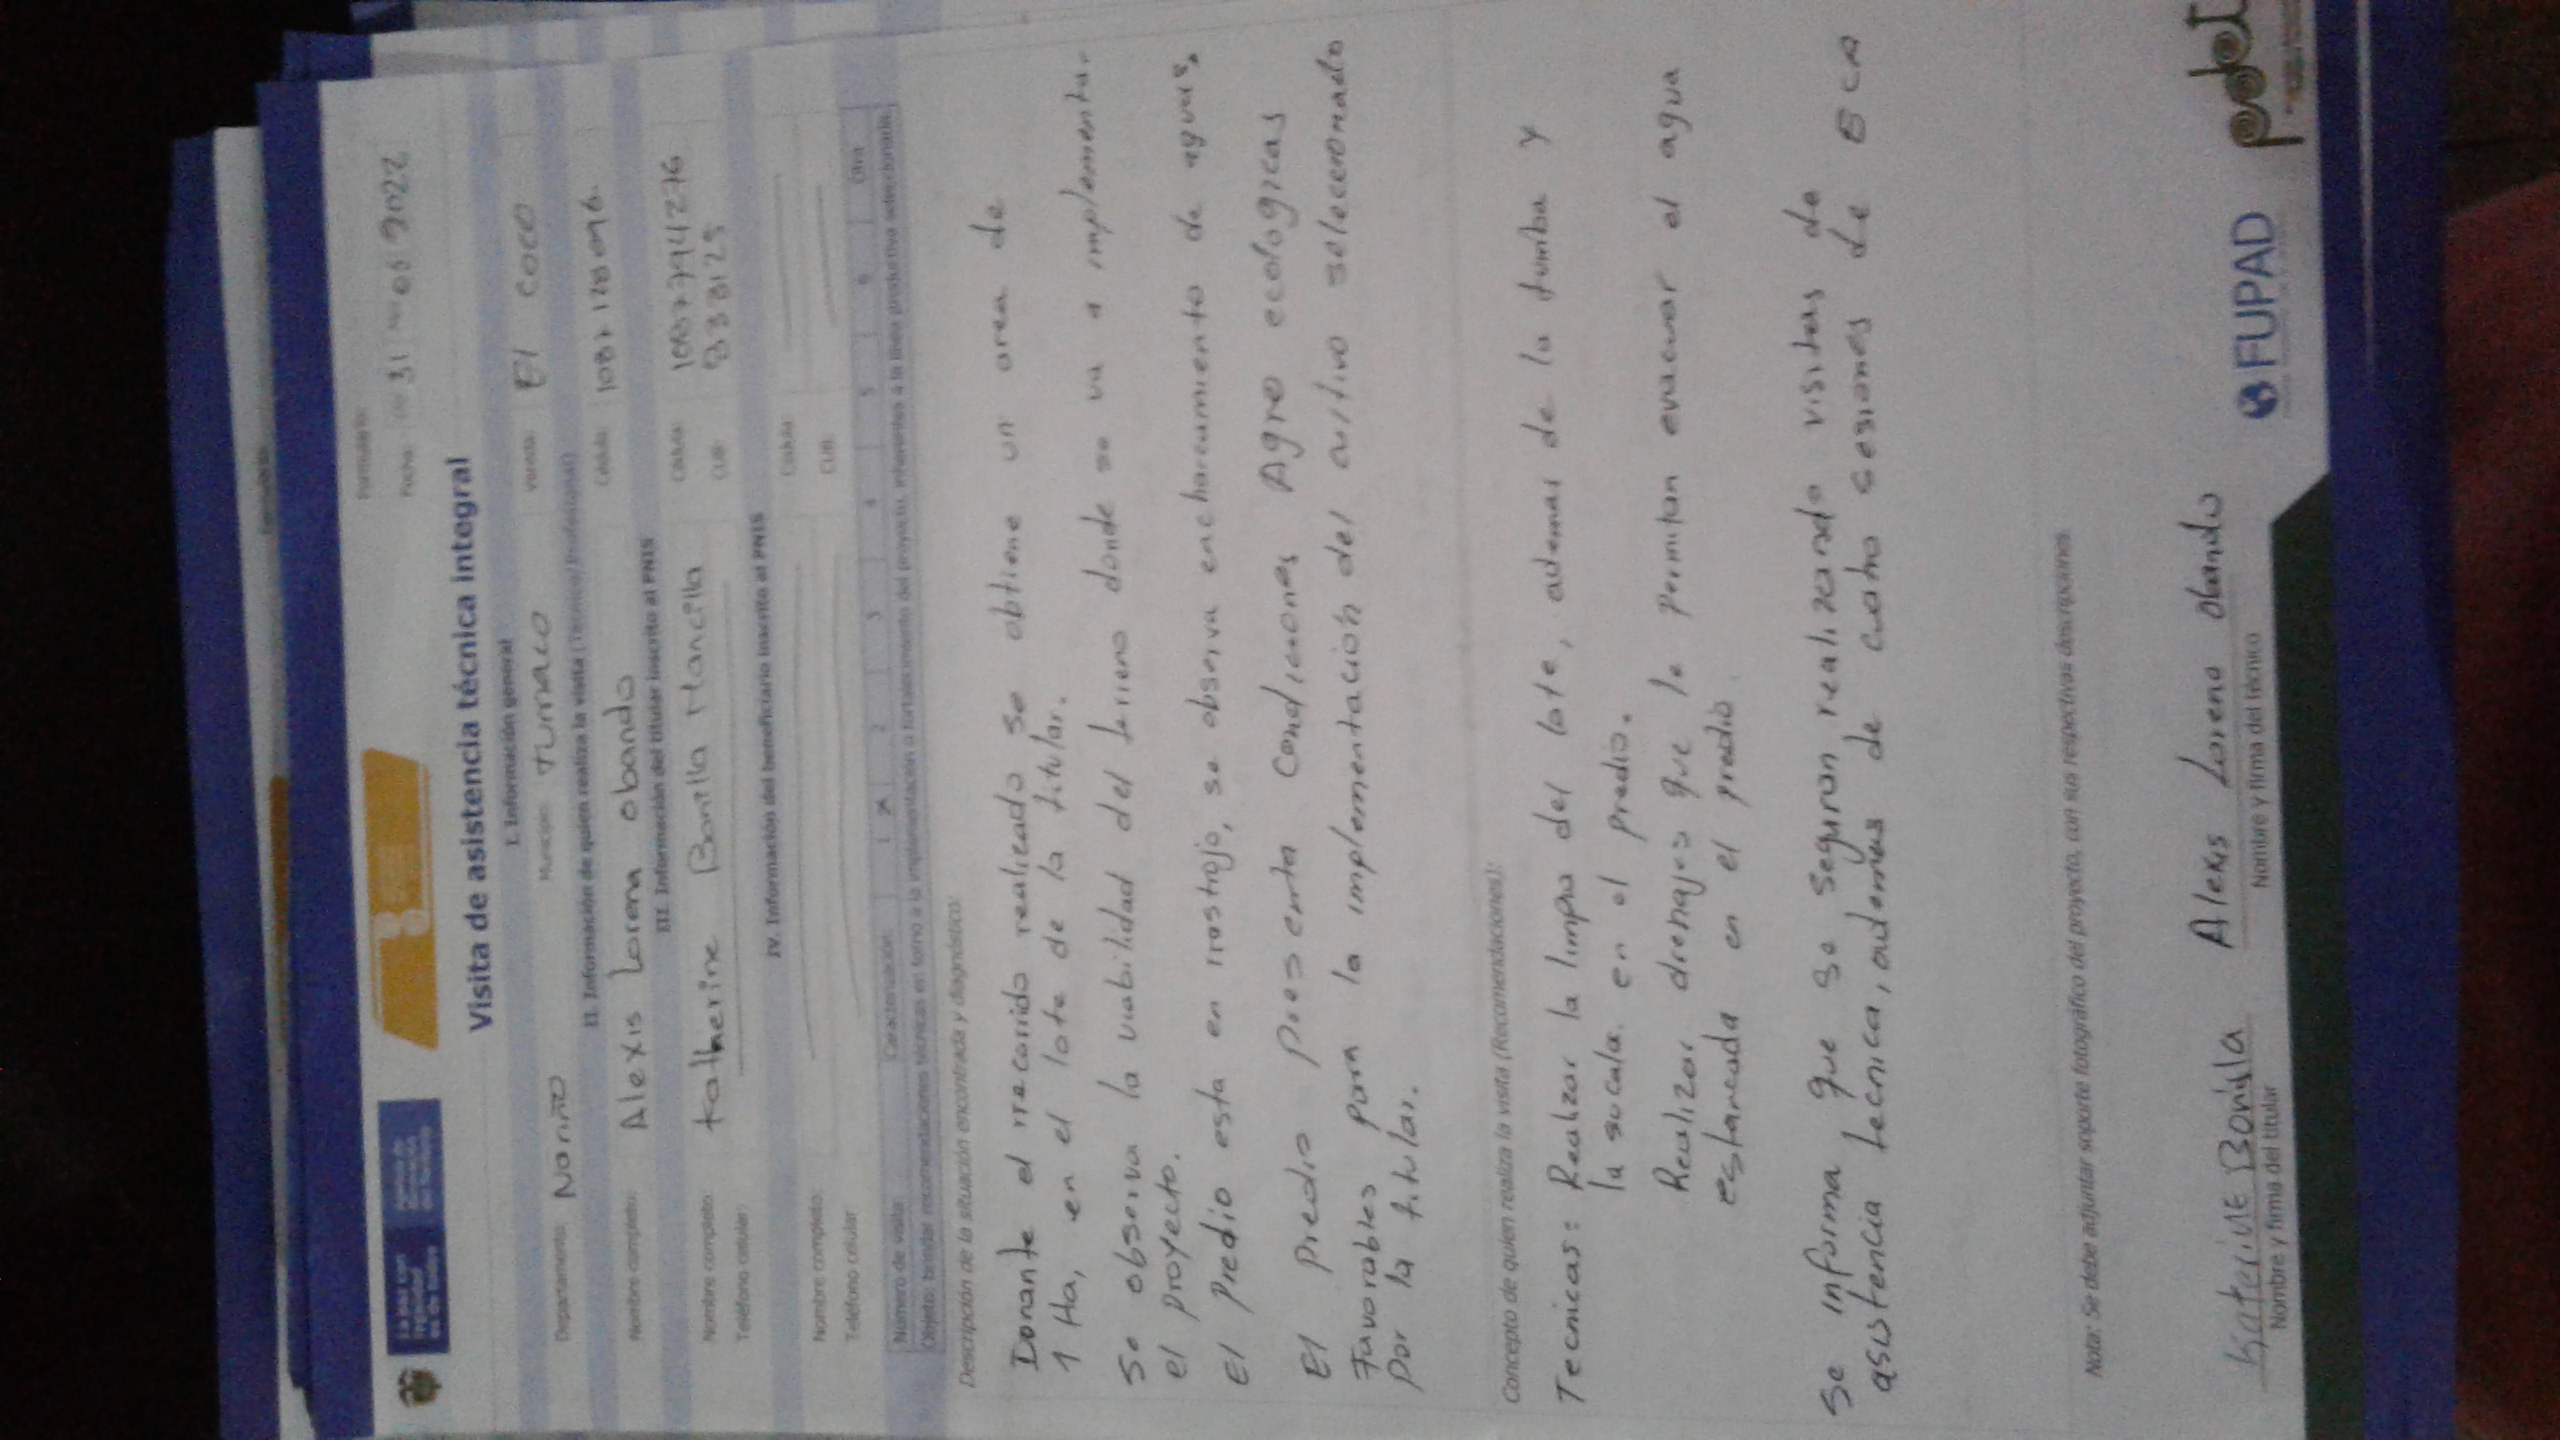 Formulario:
Fecha: 31 05 2022
Visita de asistencia técnica integral
I. Información general
Departamento: Nariño Municipio: TUMACO Vereda: El coco
II. Información de quien realiza la visita (Técnico/Profesional)
Nombre completo: Alexis Lorena Obando Cédula:
III. Información del titular inscrito al PNIS
Nombre completo: Katherine Bonilla Mancilla Cédula: 1087794276
Teléfono celular: CUB:
IV. Información del beneficiario inscrito al PNIS
Nombre completo: Cédula:
Teléfono celular: CUB:
Número de visita: Caracterización: 1 X 2 3 4 5 6 Otra
Objeto: brindar recomendaciones técnicas en torno a la implementación o fortalecimiento del proyecto, inherentes a la línea productiva seleccionada.
Descripción de la situación encontrada y diagnóstico:
Donante el rrecorrido realizado se obtiene un area de
1 Ha, en el lote de la titular.
Se observa la viabilidad del terreno donde se va a implementar
el proyecto.
El predio esta en rrastrojo, se observa encharcamiento de aguas,
El predio presenta condiciones Agro ecologicas
Favorables para la implementación del cultivo seleccionado
por la titular.
Concepto de quien realiza la visita (Recomendaciones):
Tecnicas: Realizar la limpia del lote, ademas de la tumba y
la socala en el predio.
Realizar drenajes que le permitan evacuar el agua
estancada en el predio.
Se informa que se seguiran realizando visitas de
asistencia tecnica, ademas de cuatro sesiones de ECA
Nota: Se debe adjuntar soporte fotográfico del proyecto, con sus respectivas descripciones.
Katerine Bonilla Alexis Lorena Obando
Nombre y firma del titular Nombre y firma del técnico
FUPAD
pdet